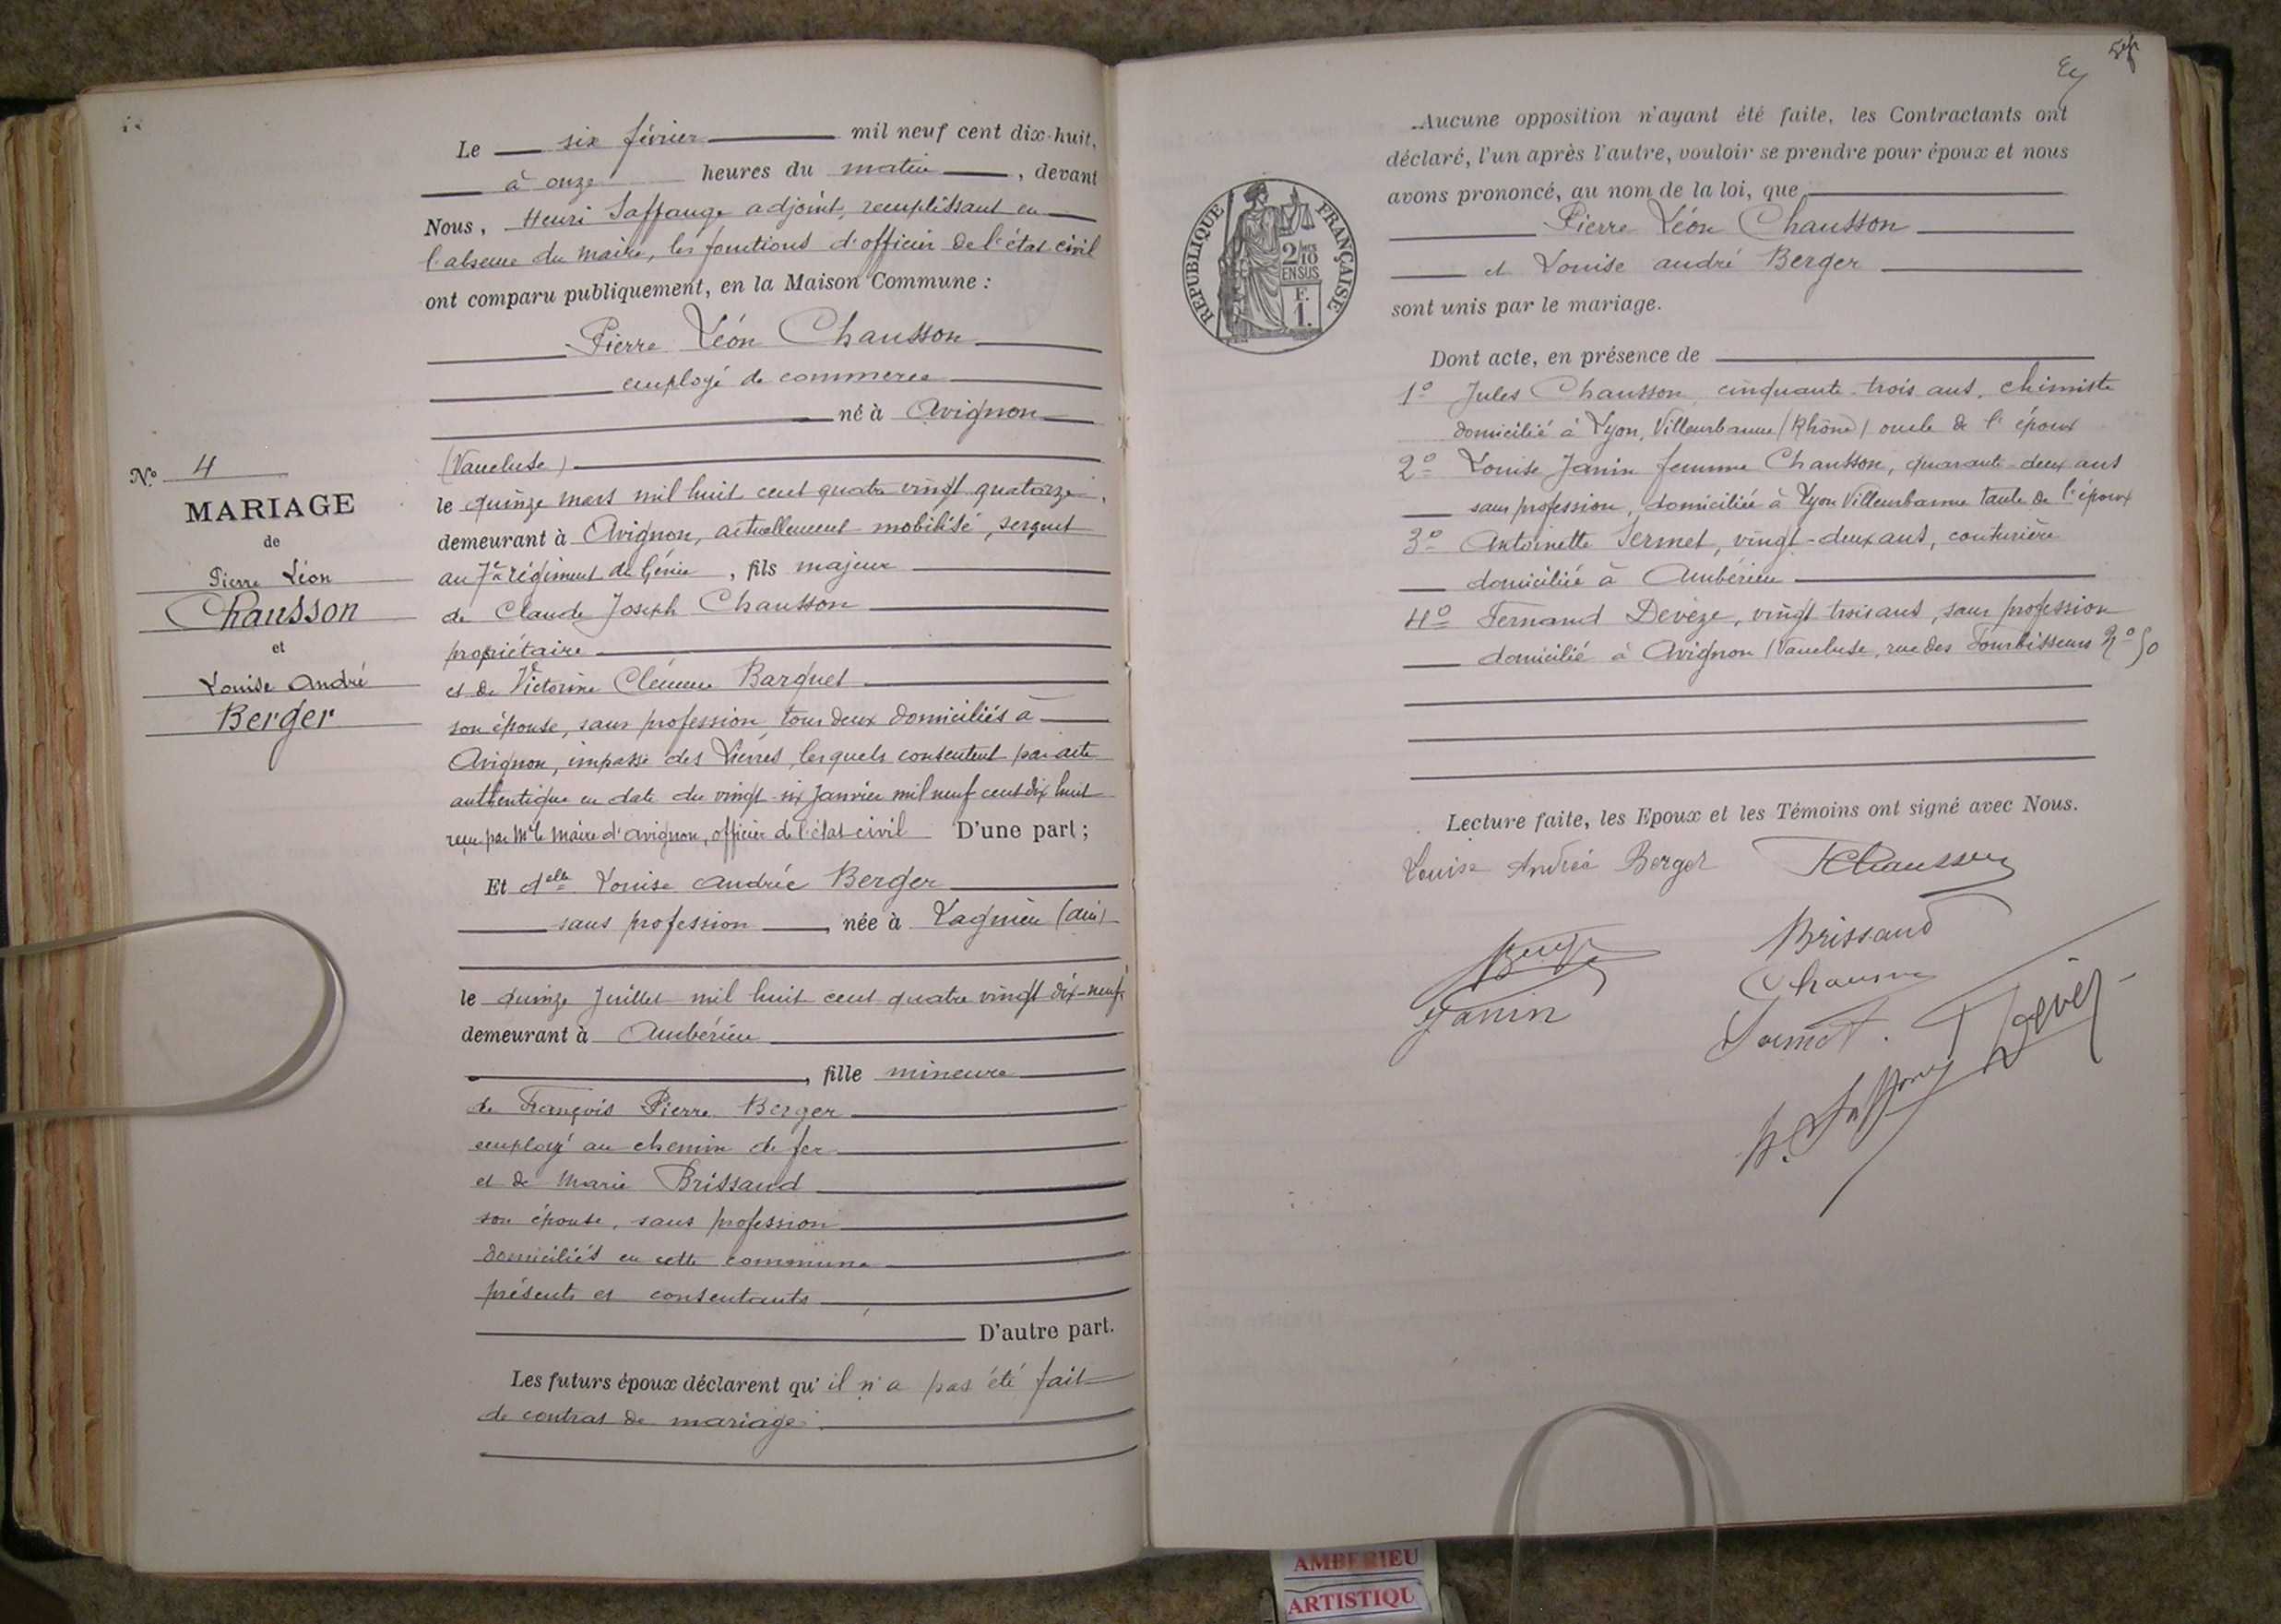 Le six février mil neuf cent dix-huit,
à onze heures du matin, devant
Nous, Henri Saffange adjoint, remplissant en
l'absence du maire, les fonctions d'officier de l'état civil
ont comparu publiquement, en la Maison Commune :
Pierre Léon Chausson
employé de commerce
né à Avignon
(Vaucluse)
le quinze mars mil huit cent quatre vingt quatorze,
demeurant à Avignon, actuellement mobilisé, sergent
au 7e régiment de Génie, fils majeur
de Claude Joseph Chausson
propriétaire
et de Victorine Clémence Barquet
son épouse, sans profession, tous deux domiciliés à
Avignon, impasse des lesquels consentent par acte
authentique en date du vingt-six Janvier mil neuf cent dix huit
reçu par Mr le Maire d'Avignon, officier de l'état-civil D'une part ;
Et delle Louise Andrée Berger
sans profession, née à Lagnieu (Ain)
le quinze Juillet mil huit cent quatre vingt dix-neuf,
demeurant à Ambérieu
, fille mineure
de François Pierre Berger
employé au chemin de fer
et de Marie Brissaud
son épouse, sans profession
domiciliés en cette commune
présents et consentants
D'autre part.
Les futurs époux déclarent qu'il n'a pas été fait
de contrat de mariage.
No 4
MARIAGE
de
Pierre Léon
Chausson
et
Louise André
Berger
Aucune opposition n'ayant été faite, les Contractants ont
déclaré, l'un après l'autre, vouloir se prendre pour époux et nous
avons prononcé, au nom de la loi, que
Pierre Léon Chausson
et Louise André Berger
sont unis par le mariage.
RÉPUBLIQUE FRANÇAISE
2/10
EN SUS
F.
1.
Dont acte, en présence de
1o Jules Chausson, cinquante-trois ans, chimiste
domicilié à Lyon, Villeurbanne (Rhône) oncle de l'époux
2o Louise Janin femme Chausson, quarante-deux ans
sans profession, domiciliée à Lyon Villeurbanne tante de l'époux
3o Antoinette Sermet, vingt-deux ans, couturière
domiciliée à Ambérieu
4o Fernand Devèze, vingt trois ans, sans profession
domicilié à Avignon (Vaucluse, rue des Fourbisseurs No 50
Lecture faite, les Epoux et les Témoins ont signé avec Nous.
Louise Andrée Berger Chausson
Berger Brissaud
Janin Chausson
Sermet
AMBERIEU
ARTISTIQU